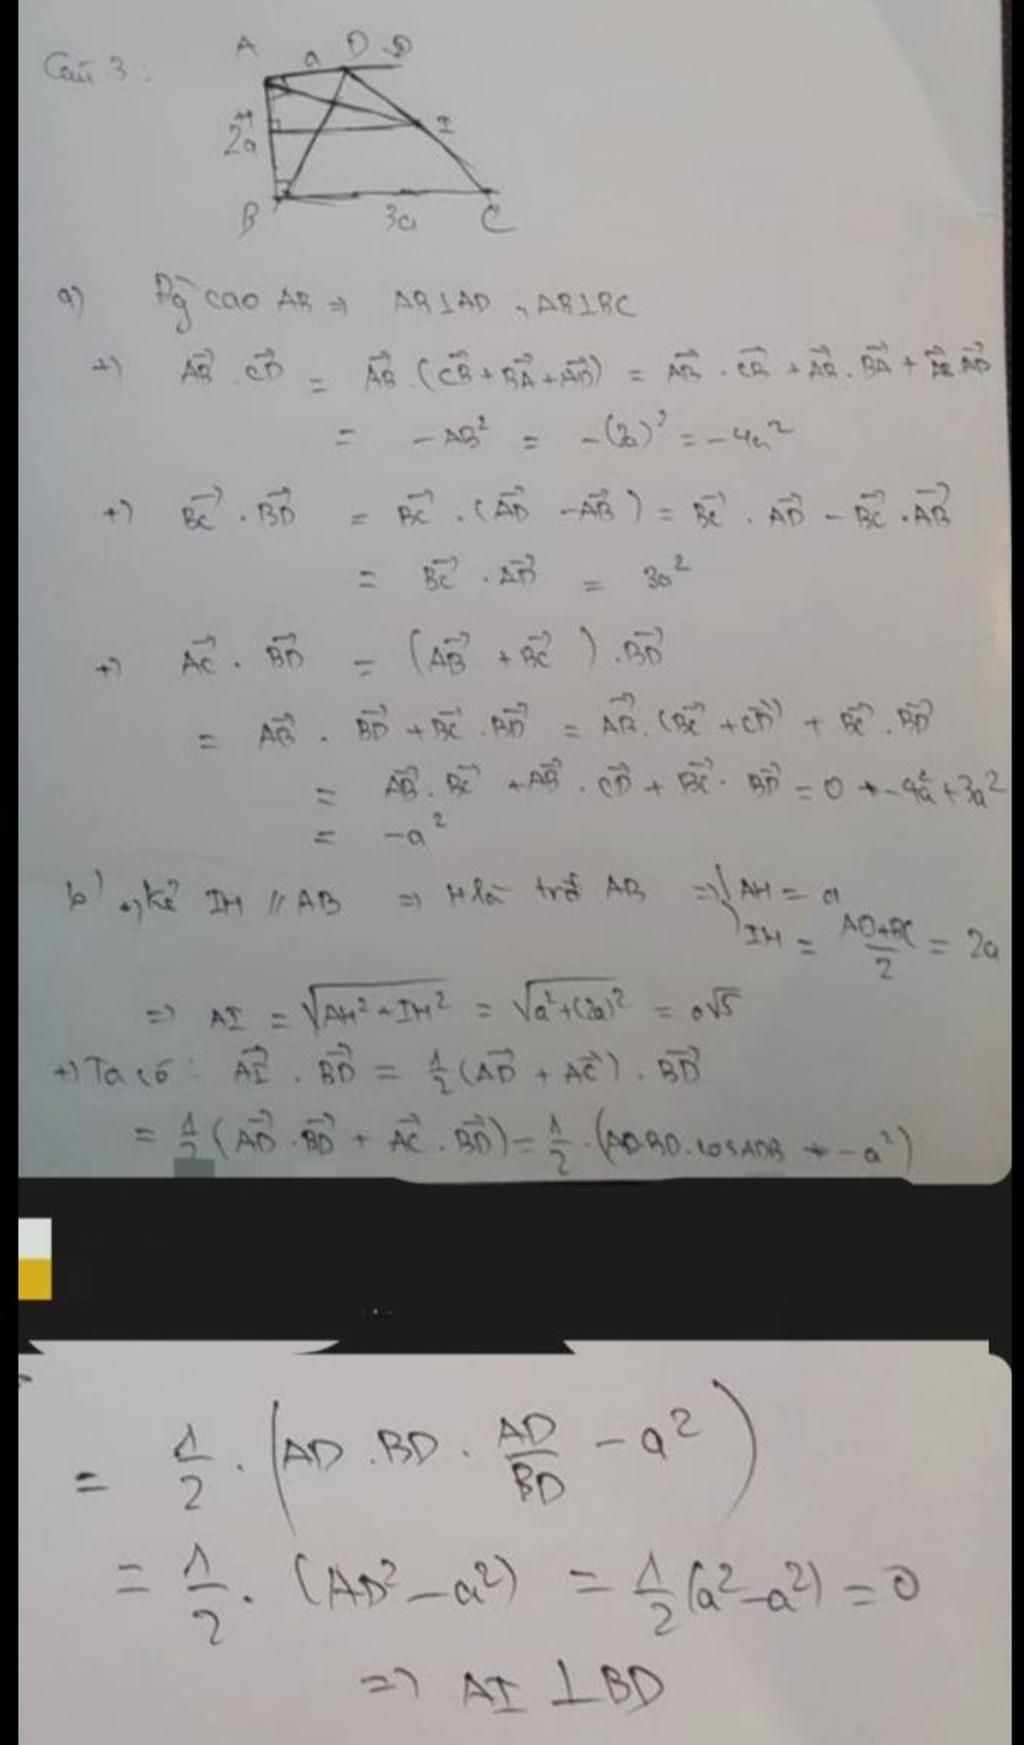 Câu 3:
A a D D
H
2a I
B 3a C
a) Đg cao AB ⇒ AB⊥AD, AB⊥BC
+) AB→ . CD→ = AB→ . (CB→ + BA→ + AD→) = AB→ . CB→ + AB→ . BA→ + AB→ . AD→
= -AB² = -(2a)² = -4a²
+) BC→ . BD→ = BC→ . (AD→ - AB→) = BC→ . AD→ - BC→ . AB→
= BC→ . AD→ = 3a²
+) AC→ . BD→ = (AB→ + BC→) . BD→
= AB→ . BD→ + BC→ . BD→ = AB→ . (BC→ + CD→) + BC→ . BD→
= AB→ . BC→ + AB→ . CD→ + BC→ . BD→ = 0 + -4a² + 3a²
= -a²
b) +) Kẻ IH // AB ⇒ H là trđ AB ⇒ { AH = a
IH = (AD+BC)/2 = 2a
⇒ AI = √(AH² + IH²) = √(a² + (2a)²) = a√5
+) Ta có: AI→ . BD→ = 1/2 (AD→ + AC→) . BD→
= 1/2 (AD→ . BD→ + AC→ . BD→) = 1/2 . (AD.BD.cosADB + -a²)
= 1/2 . (AD . BD . AD/BD - a²)
= 1/2 . (AD² - a²) = 1/2 (a² - a²) = 0
⇒ AI ⊥ BD